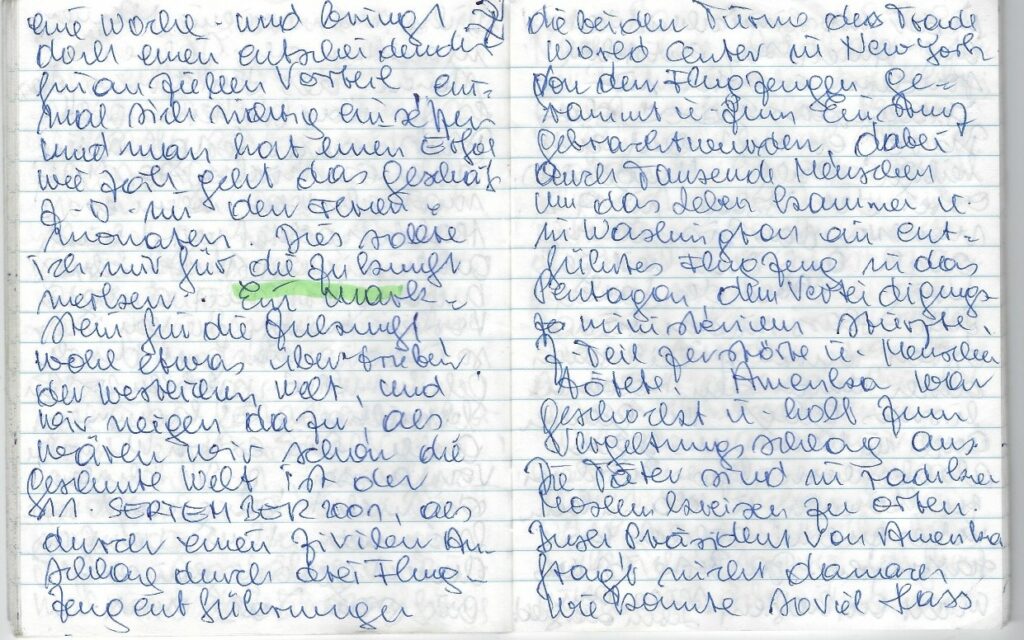 eine Woche - und bringt
doch einen entscheidenden
finanziellen Vorteil, ein-
mal sich richtig einsetzen
und man hat einen Erfol
wie zäh geht das Geschäft
z-B- in den
monaten. Dies sollte
ich mir für die Zukunft
merken. Ein Mark-
stein für die Zukunft
wohl etwas übertrieben
der westlichen Welt, und
wir neigen dazu, als
wären wir schon die
gesamte Welt ist der
11. SEPTEMBER 2001, als
durch einen zivilen An-
schlag durch drei Flug-
zeugentführungen
die beiden Türme des Trade
World Center in New York
von den Flugzeugen ge-
rammt u- zum Einsturz
gebracht wurden, dabei
auch Tausende Menschen
um das Leben kammen u.
in Washington ein ent-
führtes Flugzeug in das
Pentagon dem Verteidigungs-
ministerium stürzte,
z-Teil zerstörte u- Menschen
tötete! Amerika war
geschockt u- holt zum
Vergeltungsschlag aus
Die Täter sind in radikalen
Moslemkreisen zu orten.
Präsident von Amerika
fragt nicht danach
wie konnte soviel Hass